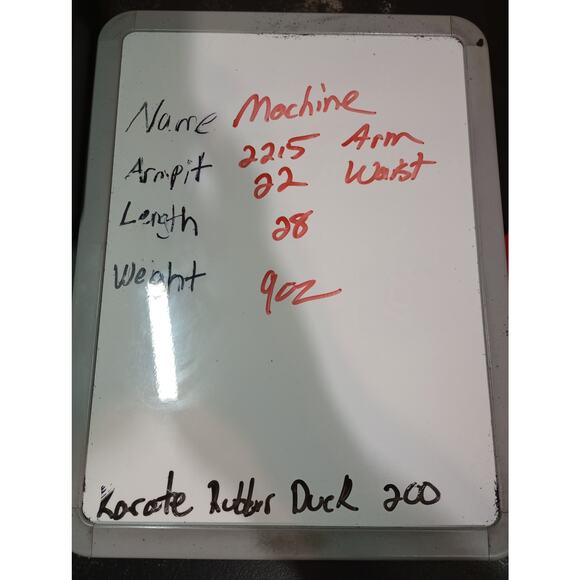 Name Machine
Armpit 22.5 Arm
22 Waist
Length 28
Weight 9oz
Karate Rubber Duck 200